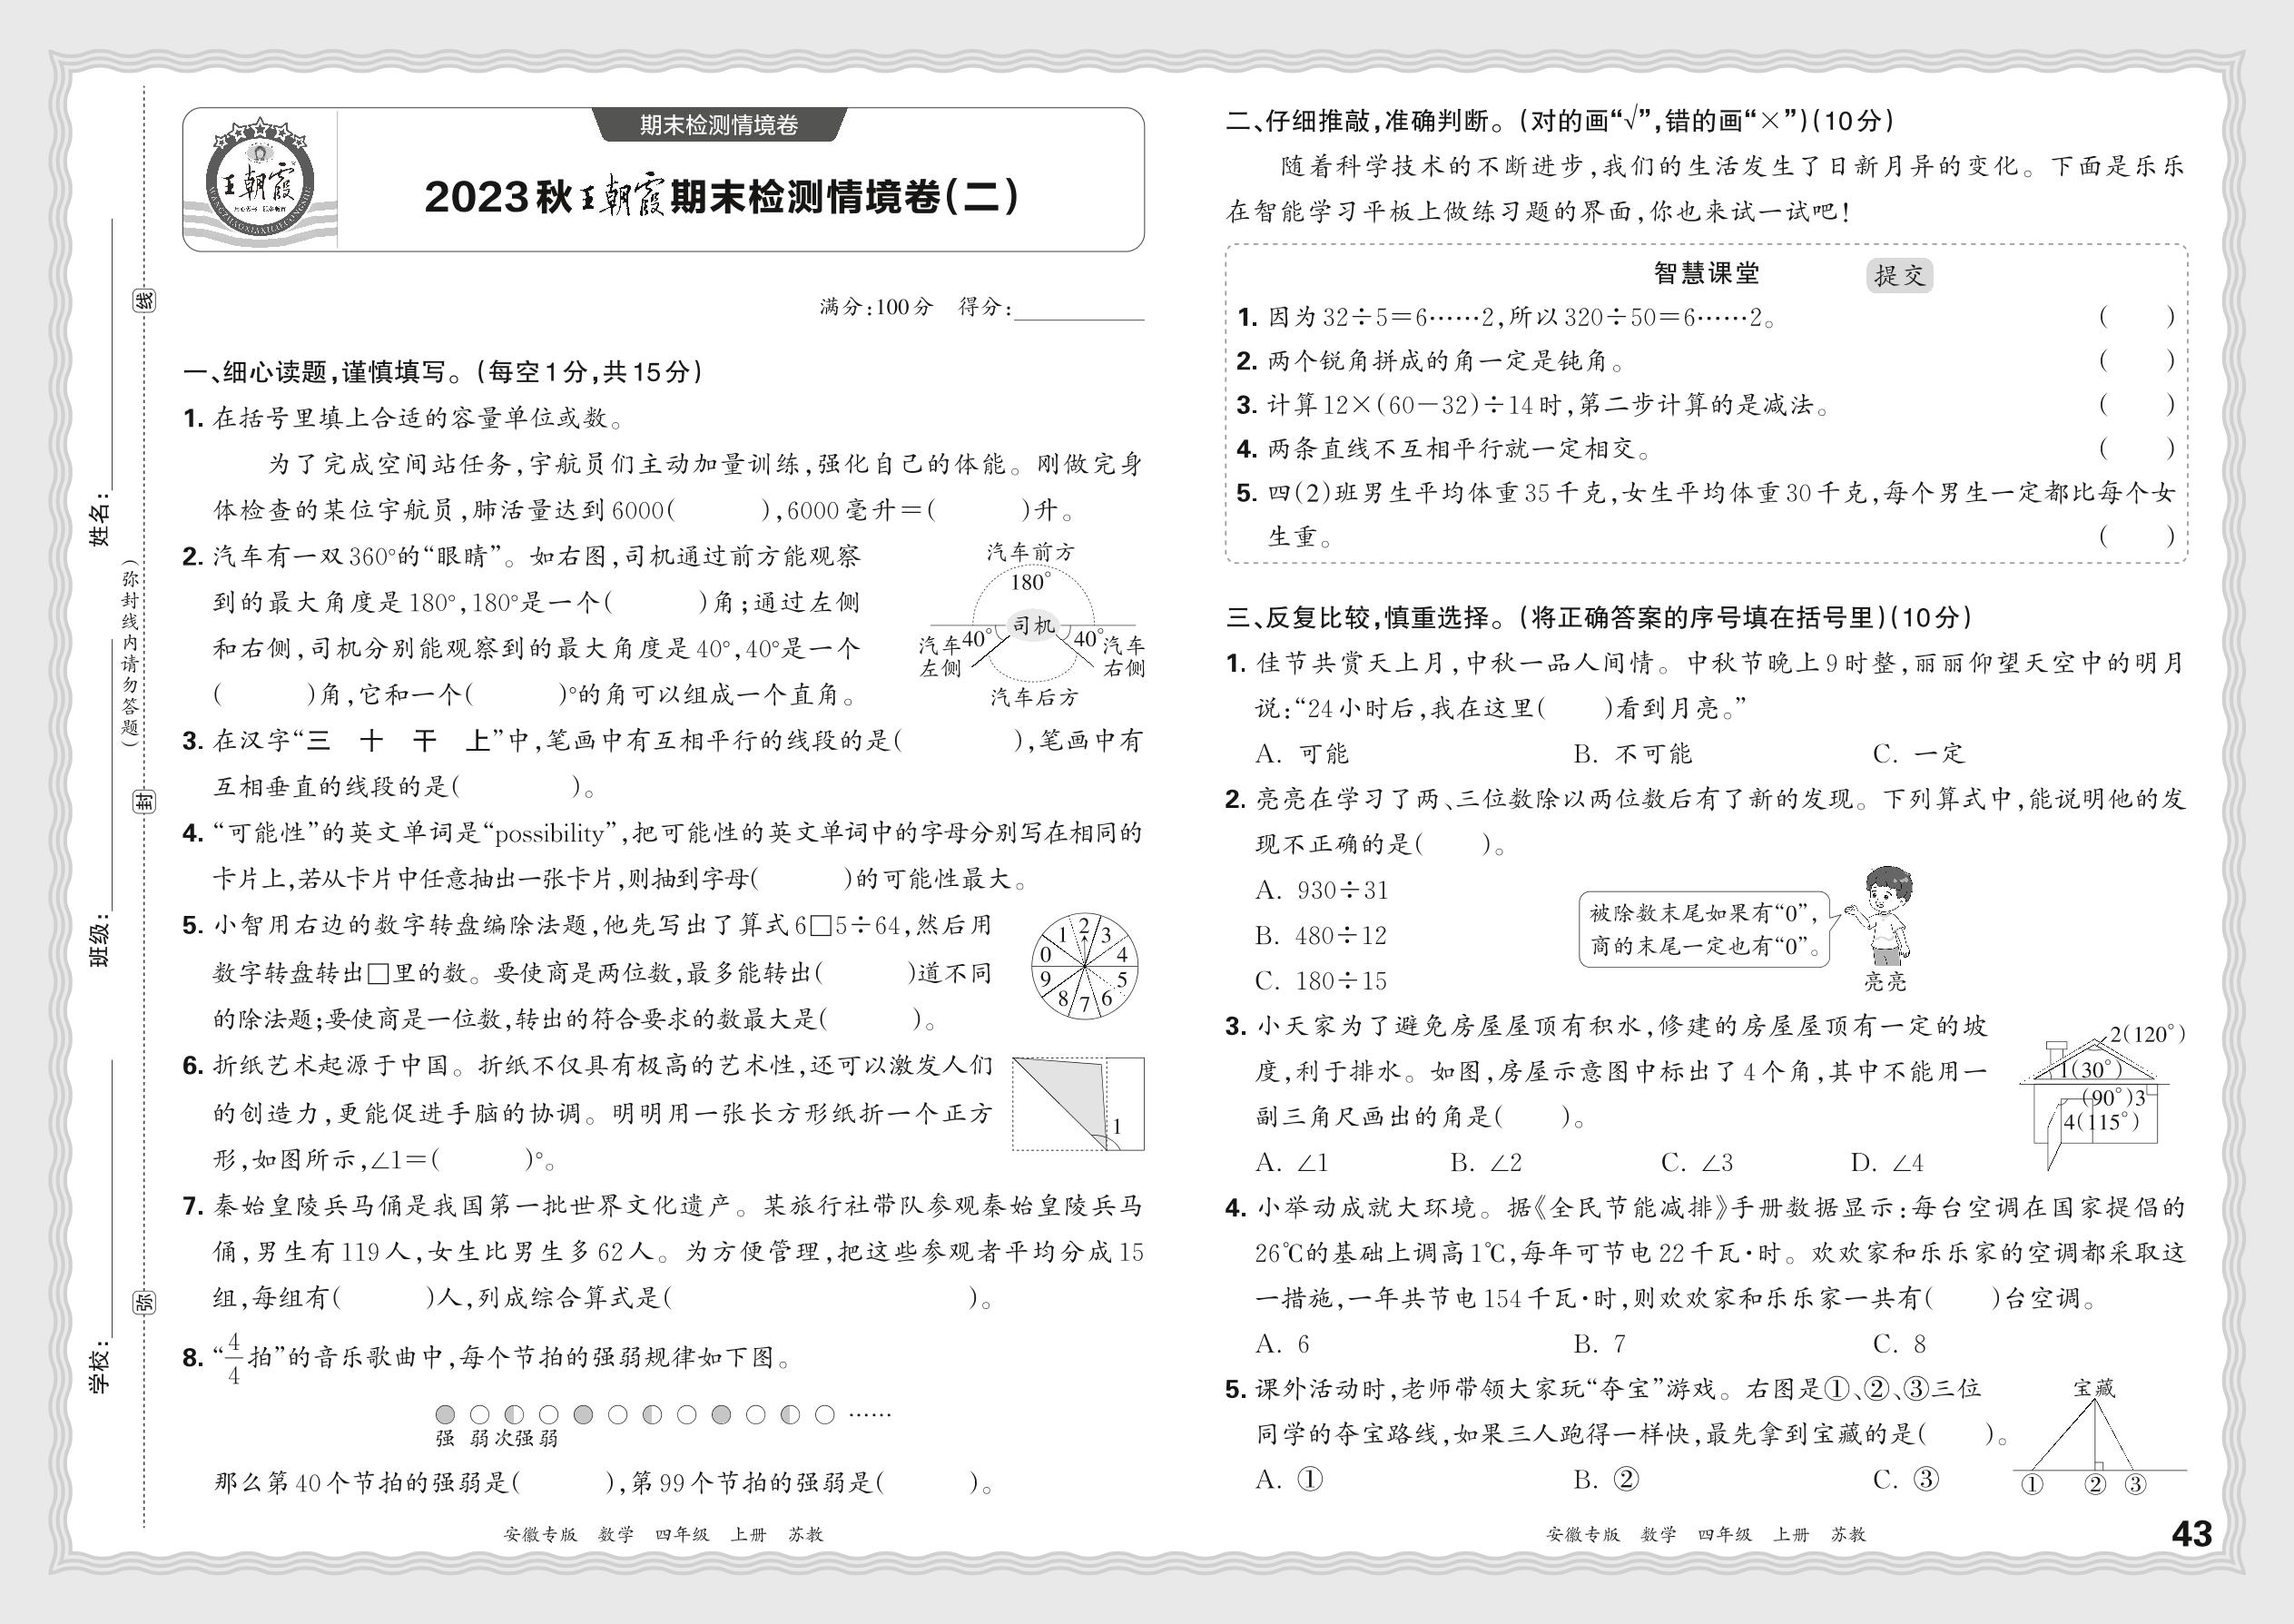 学校:
班级:
姓名:
(弥封线内请勿答题)
弥
封
线
王朝霞
期末检测情境卷
2023秋王朝霞期末检测情境卷(二)
满分:100分 得分:
一、细心读题,谨慎填写。(每空1分,共15分)
1. 在括号里填上合适的容量单位或数。
为了完成空间站任务,宇航员们主动加量训练,强化自己的体能。刚做完身
体检查的某位宇航员,肺活量达到6000( ),6000毫升=( )升。
2. 汽车有一双360°的“眼睛”。如右图,司机通过前方能观察
到的最大角度是180°,180°是一个( )角;通过左侧
和右侧,司机分别能观察到的最大角度是40°,40°是一个
( )角,它和一个( )°的角可以组成一个直角。
汽车前方
180°
司机
汽车左侧
40°
40°
汽车右侧
汽车后方
3. 在汉字“三 十 干 上”中,笔画中有互相平行的线段的是( ),笔画中有
互相垂直的线段的是( )。
4. “可能性”的英文单词是“possibility”,把可能性的英文单词中的字母分别写在相同的
卡片上,若从卡片中任意抽出一张卡片,则抽到字母( )的可能性最大。
5. 小智用右边的数字转盘编除法题,他先写出了算式6□5÷64,然后用
数字转盘转出□里的数。要使商是两位数,最多能转出( )道不同
的除法题;要使商是一位数,转出的符合要求的数最大是( )。
0 1 2 3 4 5 6 7 8 9
6. 折纸艺术起源于中国。折纸不仅具有极高的艺术性,还可以激发人们
的创造力,更能促进手脑的协调。明明用一张长方形纸折一个正方
形,如图所示,∠1=( )°。
1
7. 秦始皇陵兵马俑是我国第一批世界文化遗产。某旅行社带队参观秦始皇陵兵马
俑,男生有119人,女生比男生多62人。为方便管理,把这些参观者平均分成15
组,每组有( )人,列成综合算式是( )。
8. “4/4拍”的音乐歌曲中,每个节拍的强弱规律如下图。
……
强 弱 次强 弱
那么第40个节拍的强弱是( ),第99个节拍的强弱是( )。
安徽专版 数学 四年级 上册 苏教
二、仔细推敲,准确判断。(对的画“√”,错的画“×”)(10分)
随着科学技术的不断进步,我们的生活发生了日新月异的变化。下面是乐乐
在智能学习平板上做练习题的界面,你也来试一试吧!
智慧课堂 提交
1. 因为32÷5=6……2,所以320÷50=6……2。 ( )
2. 两个锐角拼成的角一定是钝角。 ( )
3. 计算12×(60-32)÷14时,第二步计算的是减法。 ( )
4. 两条直线不互相平行就一定相交。 ( )
5. 四(2)班男生平均体重35千克,女生平均体重30千克,每个男生一定都比每个女
生重。 ( )
三、反复比较,慎重选择。(将正确答案的序号填在括号里)(10分)
1. 佳节共赏天上月,中秋一品人间情。中秋节晚上9时整,丽丽仰望天空中的明月
说:“24小时后,我在这里( )看到月亮。”
A. 可能 B. 不可能 C. 一定
2. 亮亮在学习了两、三位数除以两位数后有了新的发现。下列算式中,能说明他的发
现不正确的是( )。
A. 930÷31
B. 480÷12
C. 180÷15
被除数末尾如果有“0”,
商的末尾一定也有“0”。
亮亮
3. 小天家为了避免房屋屋顶有积水,修建的房屋屋顶有一定的坡
度,利于排水。如图,房屋示意图中标出了4个角,其中不能用一
副三角尺画出的角是( )。
A. ∠1 B. ∠2 C. ∠3 D. ∠4
2(120°)
1(30°)
(90°)3
4(115°)
4. 小举动成就大环境。据《全民节能减排》手册数据显示:每台空调在国家提倡的
26℃的基础上调高1℃,每年可节电22千瓦·时。欢欢家和乐乐家的空调都采取这
一措施,一年共节电154千瓦·时,则欢欢家和乐乐家一共有( )台空调。
A. 6 B. 7 C. 8
5. 课外活动时,老师带领大家玩“夺宝”游戏。右图是①、②、③三位
同学的夺宝路线,如果三人跑得一样快,最先拿到宝藏的是( )。
A. ① B. ② C. ③
宝藏
① ② ③
安徽专版 数学 四年级 上册 苏教
43